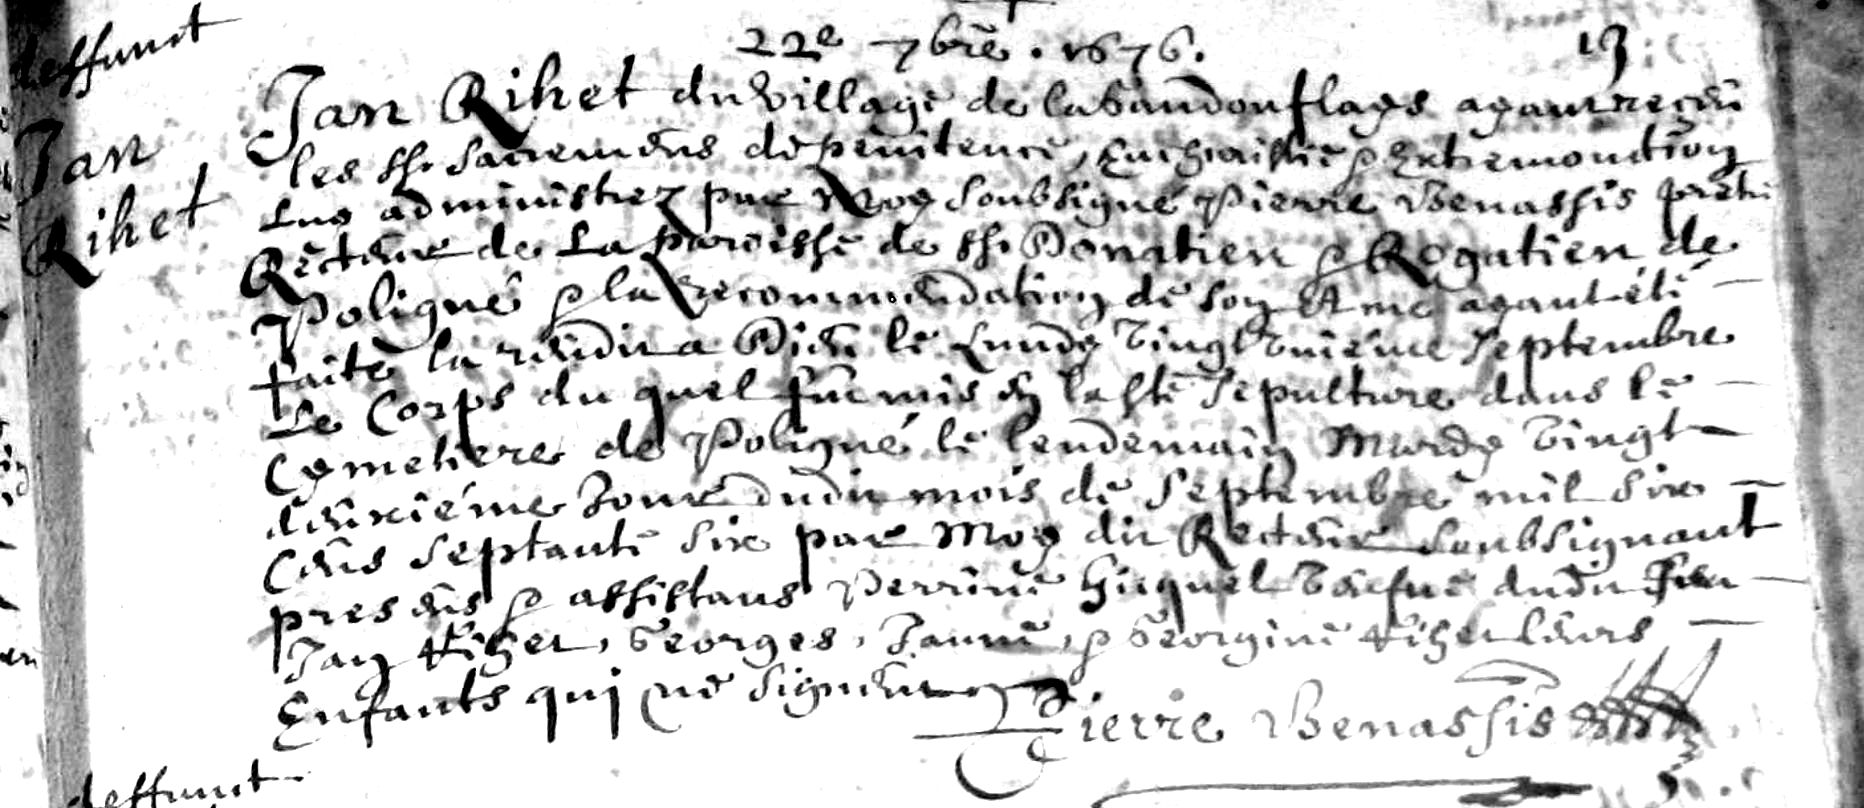 deffunct
Jan
Rihet
22e 7bre. 1676.
13
Jan Rihet du village de la ayant receu
les sts sacremens de penitence, Eucharistie & Extremonction
Luy administrez par Moy soubsigné Pierre Benassis pretre
Recteur de La paroisse de sts Donatien & Rogatien de
Poligné & la recommendation de son Ame ayant été
faite la rendit a Dieu le Lundy vingt unième septembre
Le Corps du quel fut mis en la ste sepulture dans le
Cymetiere de Poligné le lendemain Mardy vingt
deuxième Jour dudit mois de septembre mil six
Cens septante six par Moy dit Recteur soubsignant
presens & assistans Perrine vaefue dudit feu
Jan Rihet, Georges, Janne, & Georgine Rihet leurs
Enfants qui ne signent
Pierre Benassis
deffunct